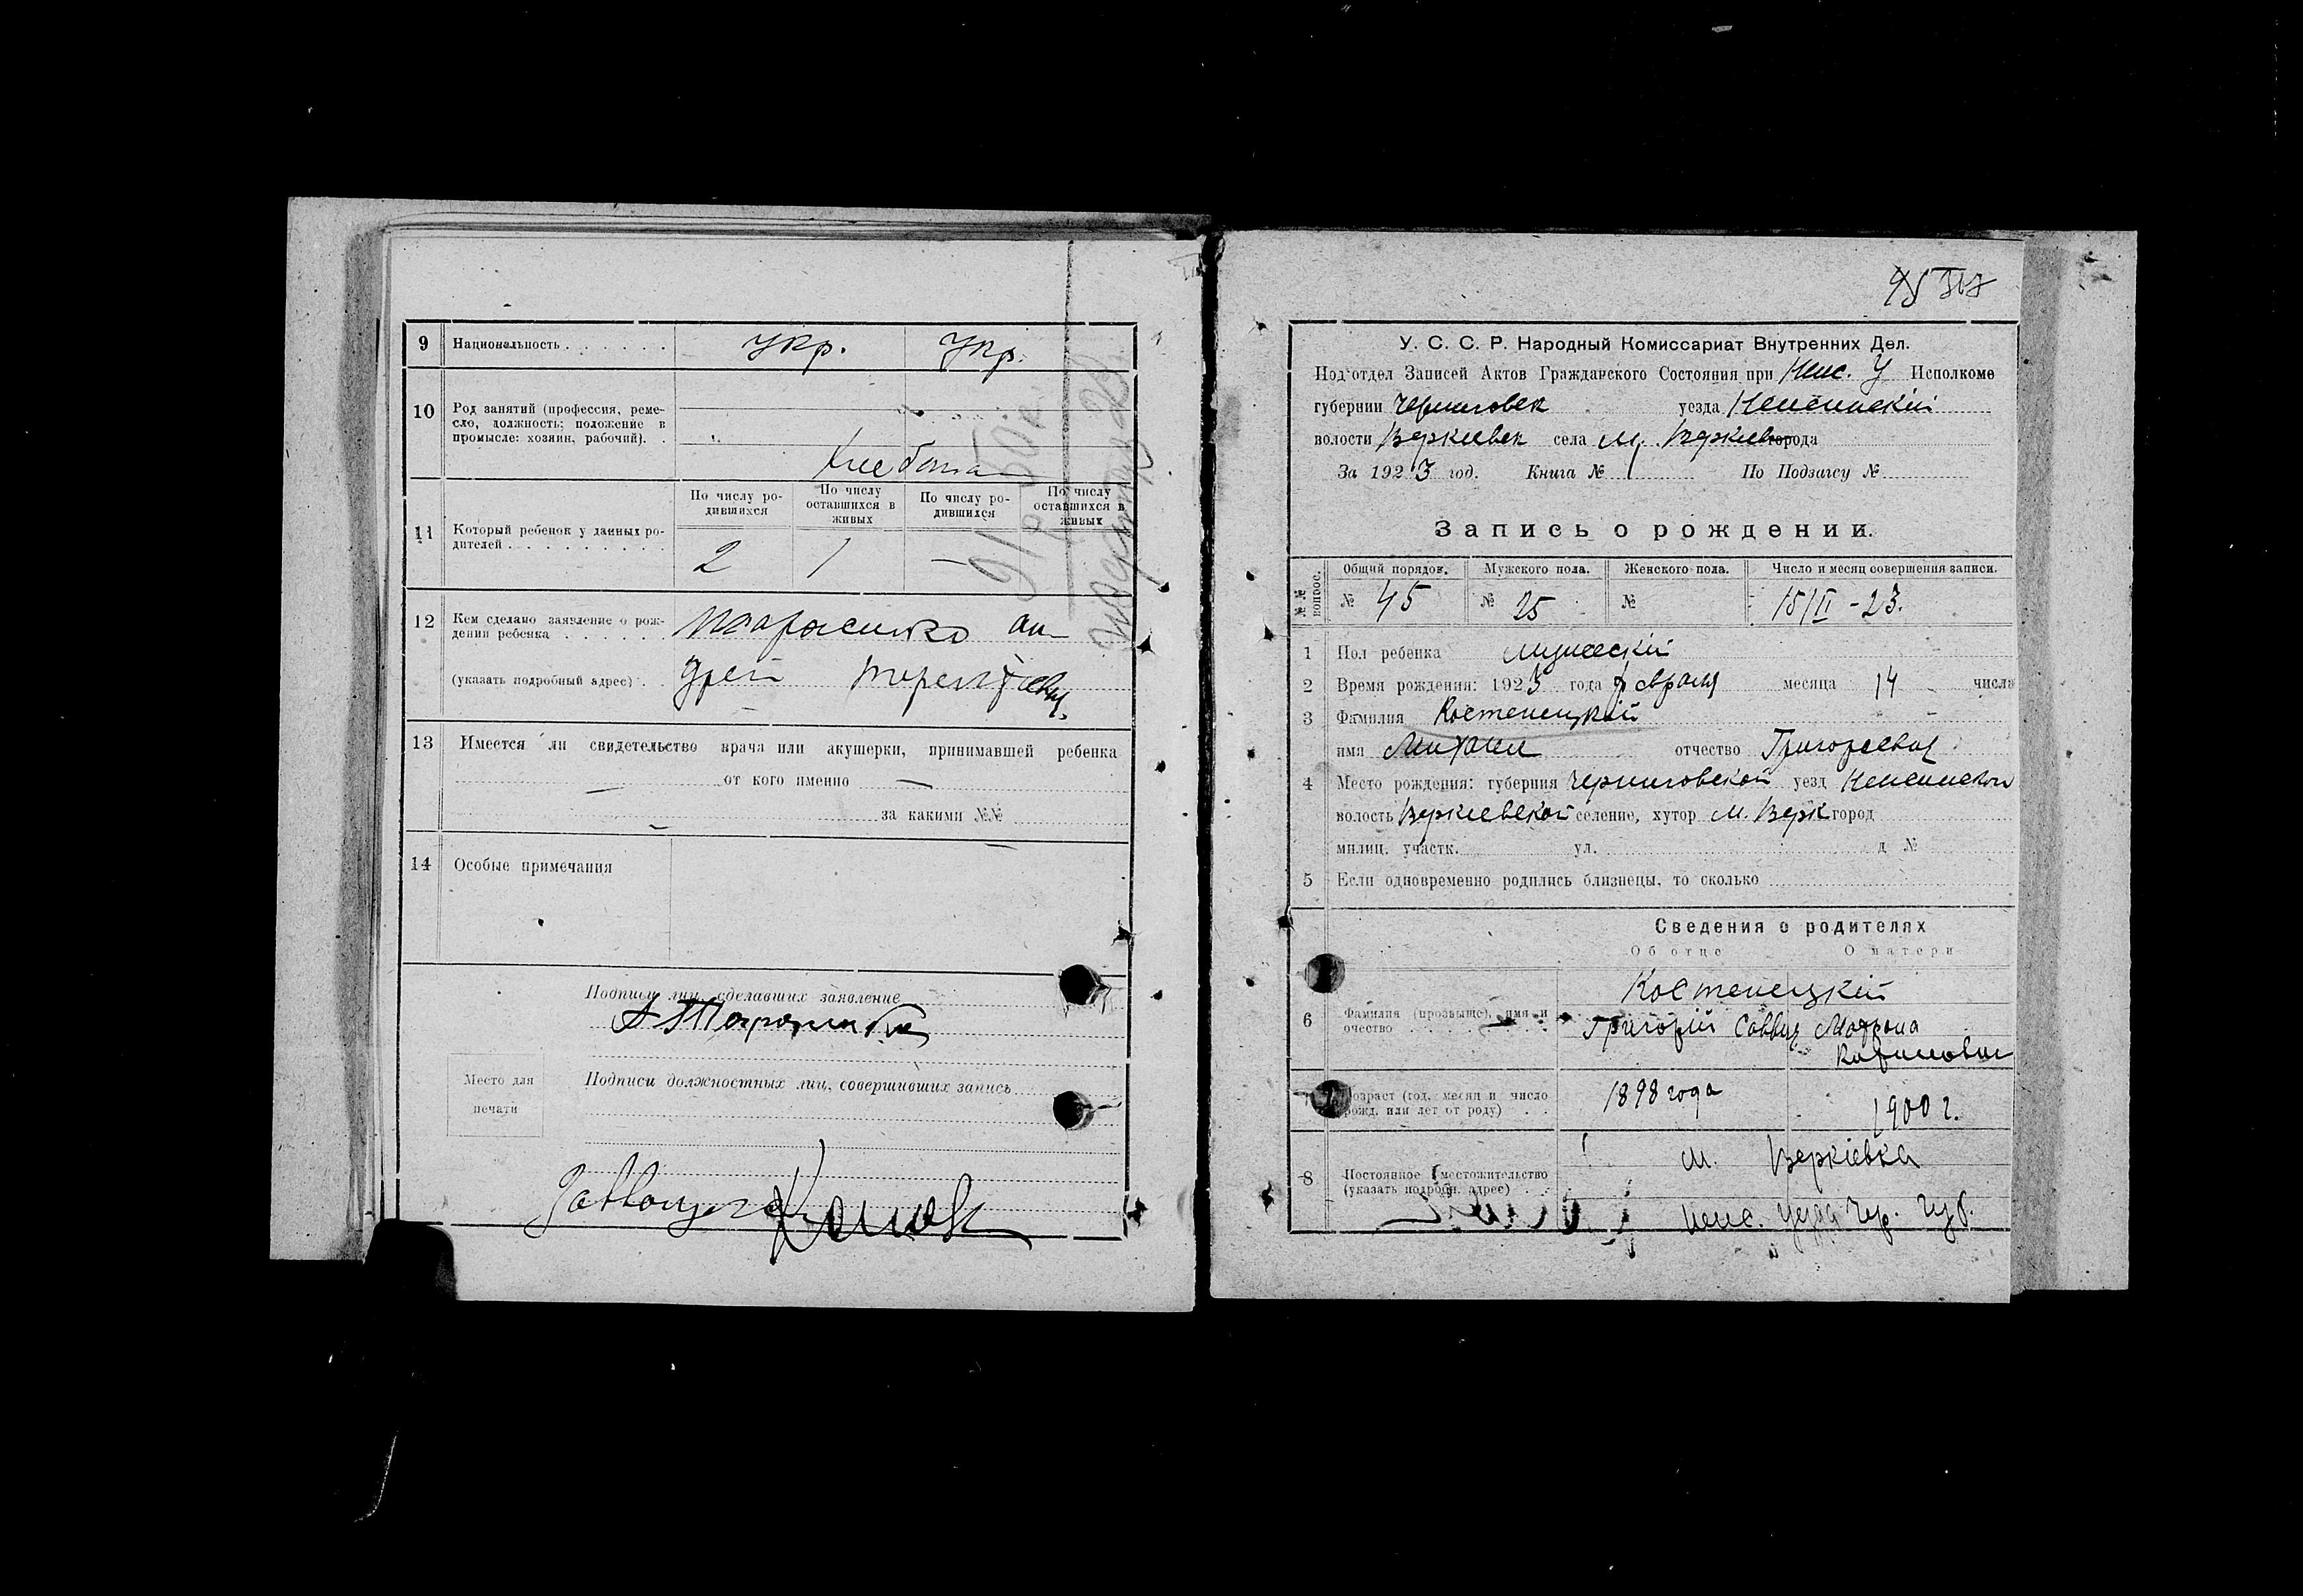 9 Национальность . . . . . . . укр. укр.
10 Род занятий (профессия, реме-
сло, должность; положение в
промысле: хозяин, рабочий). .
Хлебопа
По числу ро-
дившихся
По числу
оставшихся в
живых
По числу ро-
дившихся
По числу
оставшихся в
живых
11 Который ребенок у данных ро-
дителей . . . . . . . . . 2 1 —
12 Кем сделано заявление о рож-
дении ребенка . . . . . . Тарасенко Ан-
(указать подробный адрес) . дрей
13 Имеется ли свидетельство врача или акушерки, принимавшей ребенка
— от кого именно —
— за какими №№ —
14 Особые примечания
Подписи лиц, сделавших заявление
А Тарасенко
Место для
печати
Подписи должностных лиц, совершивших запись
45
У. С. С. Р. Народный Комиссариат Внутренних Дел.
Под'отдел Записей Актов Гражданского Состояния при Неж. У Исполкоме
губернии Черниговск уезда Неженский
волости Веркиевск села М. Веркиев города
За 1923 год. Книга № 1 По Подзагсу №
Запись о рождении.
№№ вопрос.
Общий порядок. Мужского пола. Женского пола. Число и месяц совершения записи.
№ 45 № 25 № 15/II - 23.
1 Пол ребенка мужескій
2 Время рождения: 1923 года февраля месяца 14 числа
3 Фамилия Костенецкій
имя Михаил отчество Григорьевич
4 Место рождения: губерния Черниговской уезд Неженской
волость Веркіевской селение, хутор М. Верк город
милиц. участк. ул. д №
5 Если одновременно родились близнецы, то сколько
Сведения о родителях
Об отце О матери
Костенецкій
6 Фамилия (прозвище), имя и
очество . . . Григорій Саввич Матрона
7 Возраст (год, месяц и число
рожд. или лет от роду) . . 1898 года 1900 г.
8 Постоянное местожительство
(указать подробн. адрес) . . м. Веркіевка
Неж. уезда Чер. губ.